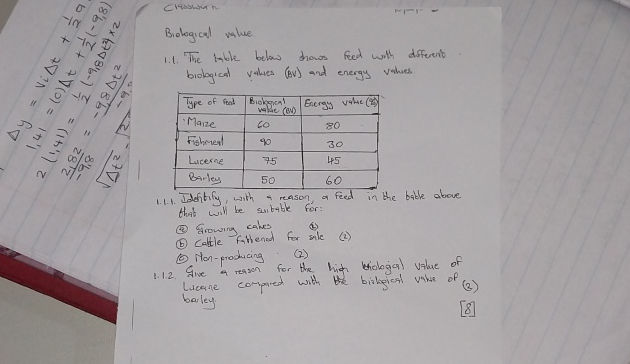 Classwork
Biological value
1.1. The table below shows feed with different
biological values (BV) and energy values.
Type of feed Biological value (BV) Energy value (%)
Maize 60 80
Fishmeal 90 30
Lucerne 75 45
Barley 50 60
1.1.1. Identify, with a reason, a feed in the table above
that will be suitable for:
(a) Growing calves (2)
(b) Cattle fattened for sale (2)
(c) Non-producing (2)
1.1.2. Give a reason for the high biological value of
Lucerne compared with the biological value of
barley (2)
[8]
Δy = ViΔt + 1/2 a
1,41 = (0)Δt + 1/2 (-9,8)
2(1,41) = 1/2 (-9,8Δt²) x2
2,82 = -9,8Δt²
-9,8 -9,8
√Δt² = √2